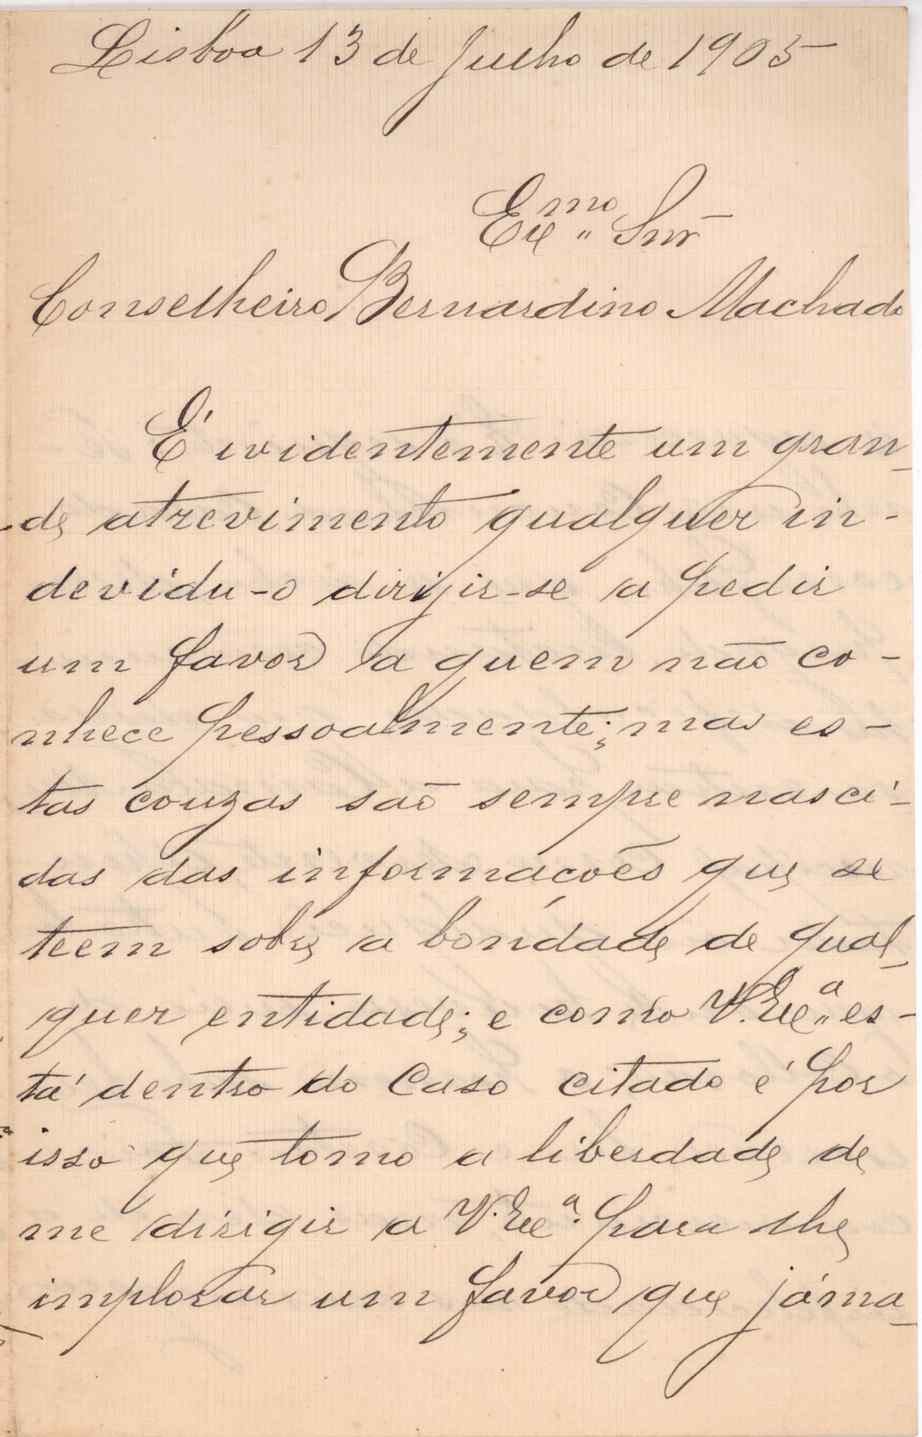 Lisboa 13 de Julho de 1905
Exmo Snr
Conselheiro Bernardino Machado
É evidentemente um gran-
de atrevimento qualquer in-
devidu-o dirijir-se a pedir
um favor a quem não co-
nhece pessoalmente; mas es-
tas couzas são sempre nasci-
das das informacoẽs que se
teem sobre a bondade de qual-
quer entidade; e como V. Exa es-
tá dentro do Caso citado é por
isso que tomo a liberdade de
me dirigir a V. Exa. para lhe
implorar um favor que jáma-